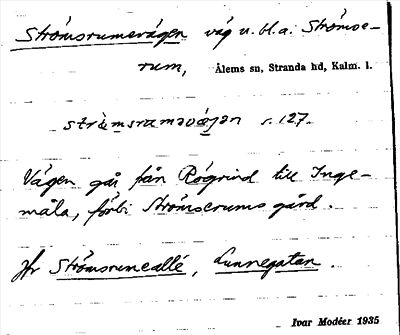 Strömsrumsvägen väg u. bl.a. Strömse-
rum, Ålems sn, Stranda hd, Kalm. l.
s. 127.
Vägen går från Rógrind till Inge-
måla, förbi Strömserums gård.
Jfr Strömsrumsallé, Lunnegatan.
Ivar Modéer 1935